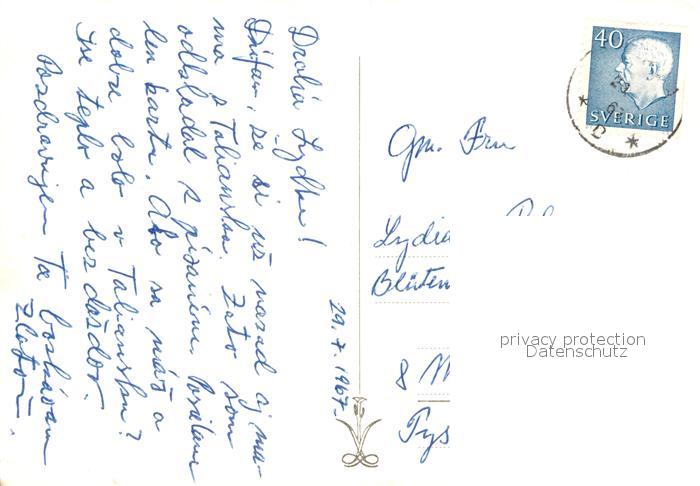 Drahá Lydka!
Dúfam, že si už nazad aj ma-
ma z Talianska. Zato som
odkladal s písaním. Posielam
len kartu. Ako sa máš a
doba bola v Taliansku?
Ste teplo a bez dažďov.
Pozdravujem Ťa bozkávam
29.7.1967
40
SVERIGE
Gm. Fru
Lydia
Blüten
8 M
privacy protection
Datenschutz